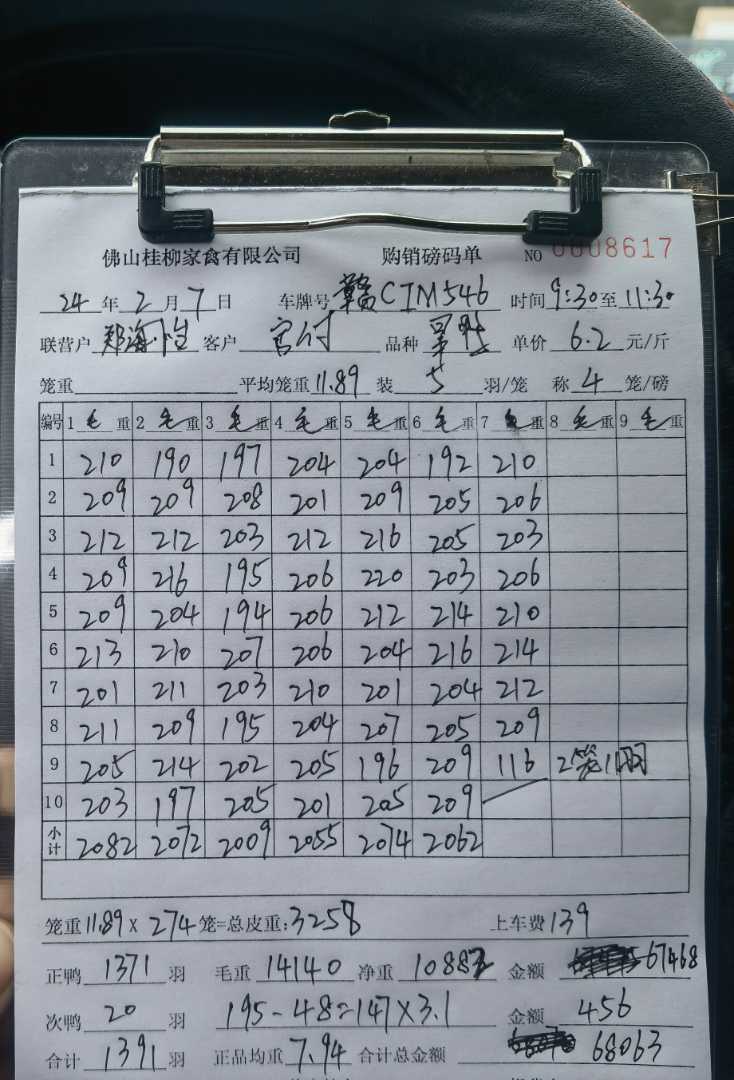 佛山桂柳家禽有限公司 购销磅码单 NO 0008617
24 年 2 月 7 日 车牌号 赣CIM546 时间 9:30 至 11:30
联营户 郑海 客户 宫付 品种 单价 6.2 元/斤
笼重 平均笼重 11.89 装 5 羽/笼 称 4 笼/磅
编号 1 毛 重 2 毛 重 3 毛 重 4 毛 重 5 毛 重 6 毛 重 7 毛 重 8 毛 重 9 毛 重
1 210 190 197 204 204 192 210
2 209 209 208 201 209 205 206
3 212 212 203 212 216 205 203
4 209 216 195 206 220 203 206
5 209 204 194 206 212 214 210
6 213 210 207 206 204 216 214
7 201 211 203 210 201 204 212
8 211 209 195 204 207 205 209
9 205 214 202 205 196 209 116 2笼11羽
10 203 197 205 201 205 209
小计 2082 2072 2009 2055 2074 2062
笼重 11.89 X 274 笼=总皮重: 3258 上车费 139
正鸭 1371 羽 毛重 14140 净重 10882 金额 67468
次鸭 20 羽 195-48=147X3.1 金额 456
合计 1391 羽 正品均重 7.94 合计总金额 68063